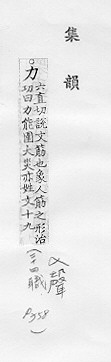 集韻
力
六直切說文筋也象人筋之形治
功曰力能圉大災亦姓文十九
入聲
(第四職
P.758)